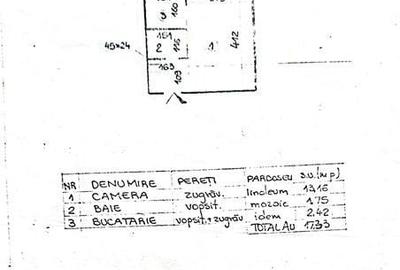 3 160
161
45×24 2 115 1 412
163
109
NR DENUMIRE PERETI PARDOSELI S.U.(mp)
1 CAMERA zugrăv. linoleum 13,16
2 BAIE vopsit. mozaic 1.75
3 BUCATARIE vopsit.+zugrăv. idem 2.42
TOTAL AU 17.33